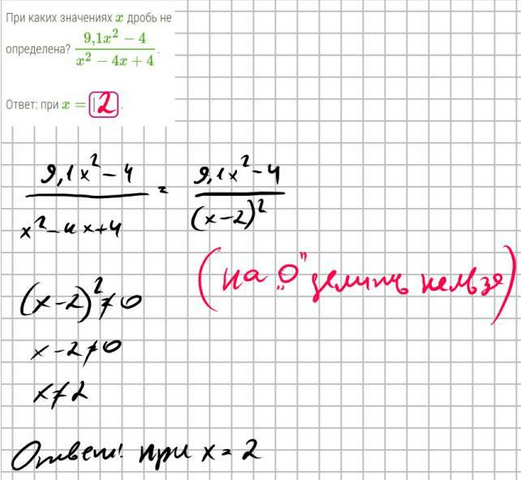 При каких значениях x дробь не
определена? (9,1x² − 4)/(x² − 4x + 4).
Ответ: при x = 2.
(9,1x² − 4)/(x² − 4x + 4) = (9,1x² − 4)/(x − 2)²
(на „0" делить нельзя)
(x − 2)² ≠ 0
x − 2 ≠ 0
x ≠ 2
Ответ: при x = 2